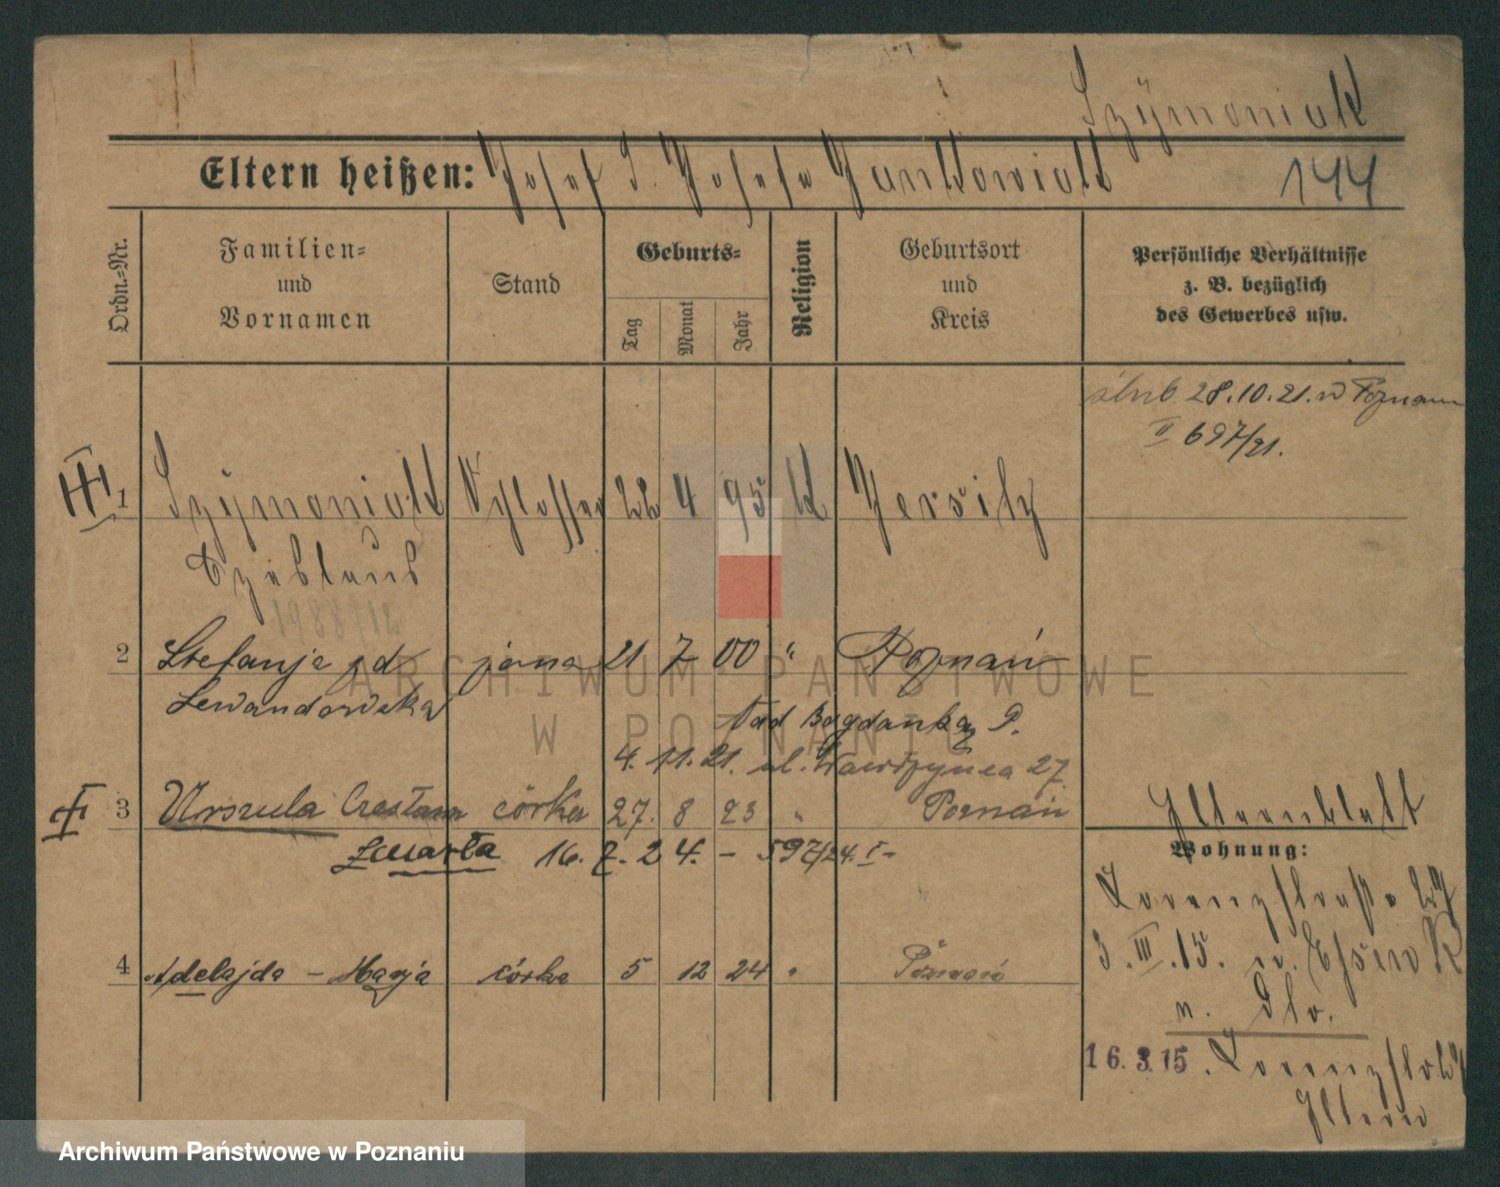 Szymoniak
Eltern heißen: Josef u. Josefa Jankowiak
144
Ordn.-Nr.
Familien-
und
Vornamen
Stand
Geburts-
Tag
Monat
Jahr
Religion
Geburtsort
und
Kreis
Persönliche Verhältnisse
z. B. bezüglich
des Gewerbes usw.
ślub 28.10.21. w Poznaniu
II 697/21.
1 Szymoniak Schlosser 22 4 95 K Jersitz
Czeslaus
2 Stefanja żona 21 7 00 " Poznań
Lewandowska
Nad Bogdanką 9.
4. 11. 21. ul. Wawrzyńca 27
3 Urszula córka 27. 8 23 " Poznań
zmarła 16. 7. 24. - 597/24. I-
4 Adelajda - Marja córka 5 12 24 " Poznań
Elternblatt
Wohnung:
Lorenzstraße 27
3. III. 15. n. Essen R
16. 3. 15. Lorenzstr 27
Eltern
ARCHIWUM PAŃSTWOWE
W POZNANIU
Archiwum Państwowe w Poznaniu